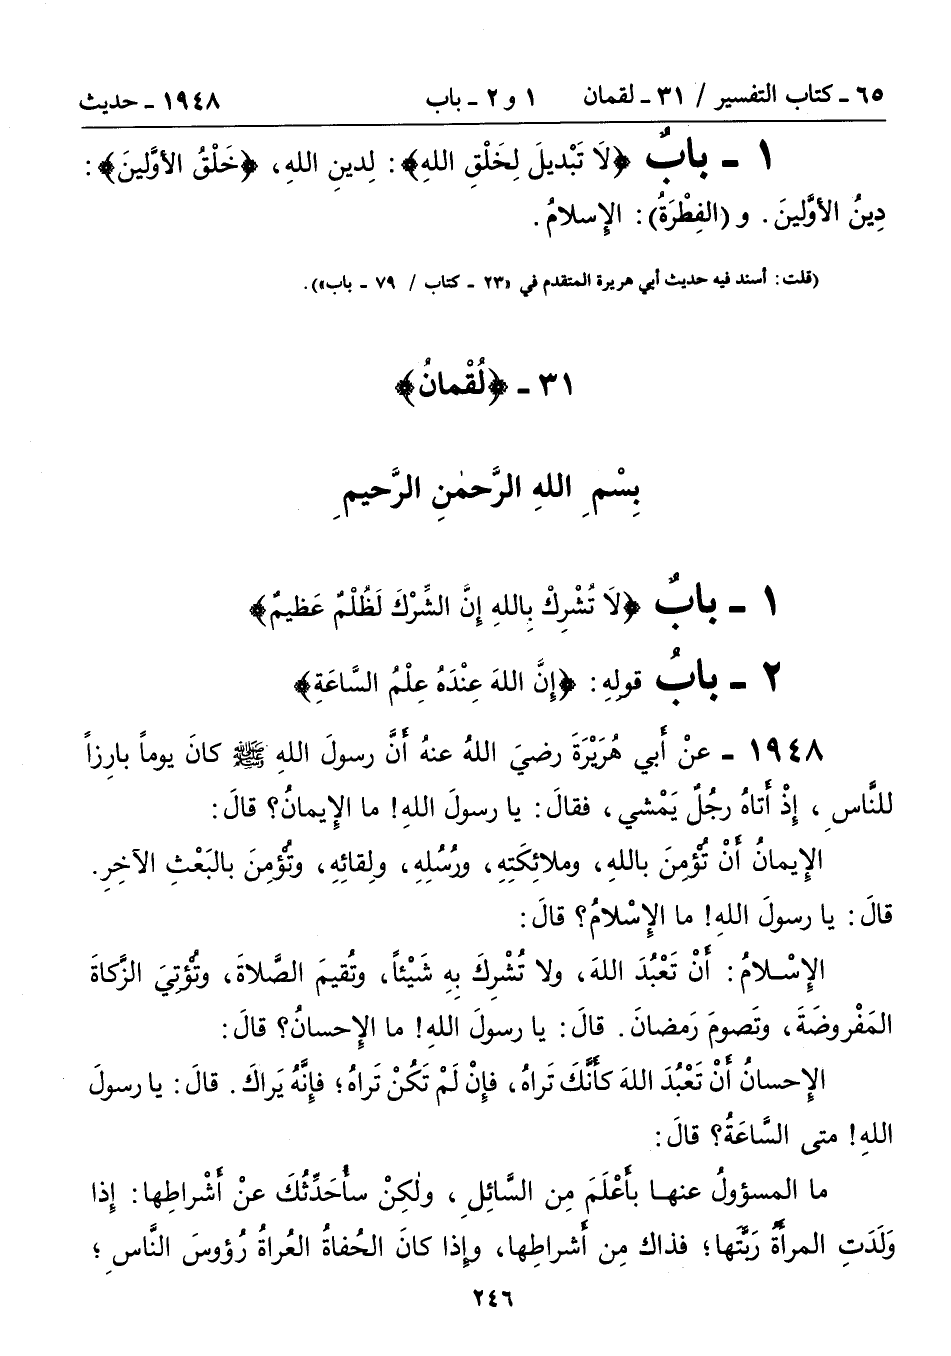 ٦٥ ـ كتاب التفسير / ٣١ ـ لقمان ١ و ٢ ـ باب ١٩٤٨ ـ حديث
١ ـ بابٌ ﴿لَا تَبْديلَ لِخَلْقِ اللهِ﴾: لِدينِ اللهِ، ﴿خَلْقُ الأوَّلينَ﴾:
دِينُ الأوَّلينَ. و (الفِطْرَةُ): الإسلامُ.
(قلت: أسند فيه حديث أبي هريرة المتقدم في «٢٣ ـ كتاب / ٧٩ ـ باب»).
٣١ ـ ﴿لُقْمانُ﴾
بِسْمِ اللهِ الرَّحمٰنِ الرَّحيمِ
١ ـ بابٌ ﴿لَا تُشْرِكْ بِاللهِ إنَّ الشِّرْكَ لَظُلْمٌ عَظيمٌ﴾
٢ ـ بابُ قولِهِ: ﴿إنَّ اللهَ عِنْدَهُ عِلْمُ السَّاعَةِ﴾
١٩٤٨ ـ عنْ أبي هُرَيْرَةَ رضيَ اللهُ عنهُ أنَّ رسولَ اللهِ ﷺ كانَ يوماً بارِزاً
للنَّاسِ، إذْ أَتاهُ رجُلٌ يَمْشي، فقالَ: يا رسولَ اللهِ! ما الإيمانُ؟ قالَ:
الإيمانُ أنْ تُؤْمِنَ باللهِ، وملائِكَتِهِ، ورُسُلِهِ، ولِقائِهِ، وتُؤْمِنَ بالبَعْثِ الآخِرِ.
قالَ: يا رسولَ اللهِ! ما الإسْلامُ؟ قالَ:
الإسْلامُ: أنْ تَعْبُدَ اللهَ، ولا تُشْرِكَ بِهِ شَيْئاً، وتُقيمَ الصَّلاةَ، وتُؤْتِيَ الزَّكاةَ
المَفْروضَةَ، وتَصومَ رَمضانَ. قالَ: يا رسولَ اللهِ! ما الإحسانُ؟ قالَ:
الإحسانُ أنْ تَعْبُدَ اللهَ كأنَّكَ تَراهُ، فإنْ لَمْ تَكُنْ تَراهُ؛ فإنَّهُ يَراكَ. قالَ: يا رسولَ
اللهِ! متى السَّاعَةُ؟ قالَ:
ما المسؤولُ عنها بأَعْلَمَ مِن السَّائِلِ، ولٰكِنْ سأُحَدِّثُكَ عنْ أَشْراطِها: إذا
وَلَدَتِ المرأةُ رَبَّتَها؛ فذاكَ مِن أشراطِها، وإذا كانَ الحُفاةُ العُراةُ رُؤوسَ النَّاسِ؛
٢٤٦